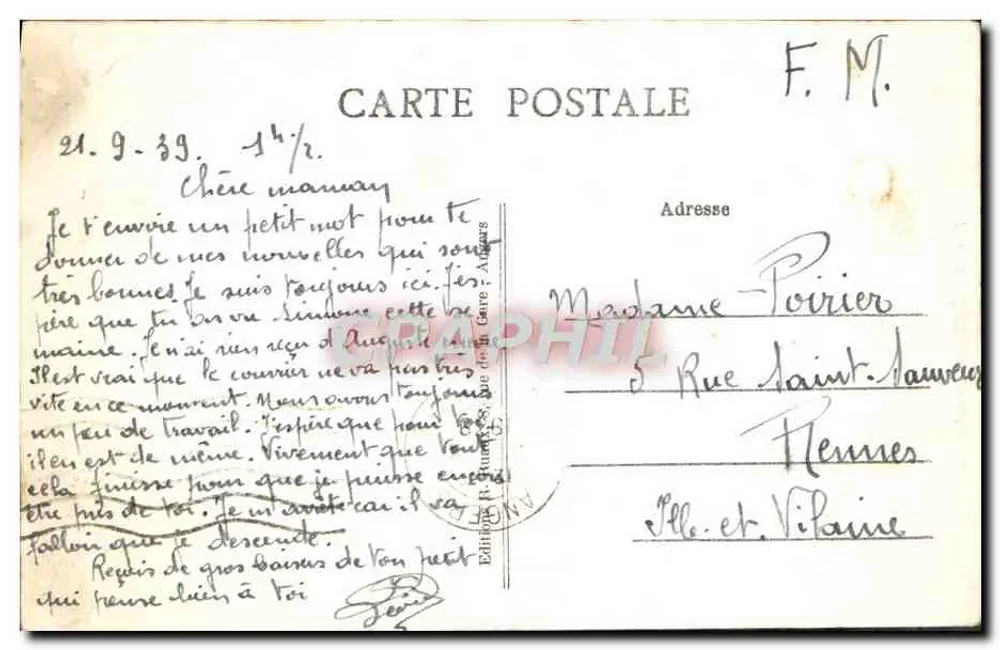 F. M.
CARTE POSTALE
21-9-39. 1h/2.
Chère maman
Je t'envoie un petit mot pour te
donner de mes nouvelles qui sont
très bonnes. Je suis toujours ici. J'es-
père que tu as vu Simone cette se
maine. Je n'ai rien reçu d'Auguste
Il est vrai que le courrier ne va pas très
vite en ce moment. Nous avons toujours
un peu de travail. J'espère que pour toi
il en est de même. Vivement que tout
cela finisse pour que je puisse encore
être près de toi. Je m'arrête car il va
falloir que je descende.
Reçois de gros baisers de ton petit
qui pense bien à toi
Editions R. de la Gare - Angers
Adresse
Madame Poirier
5 Rue Saint-Sauveur
Rennes
Ille-et-Vilaine
ANGERS
CPAPHIL